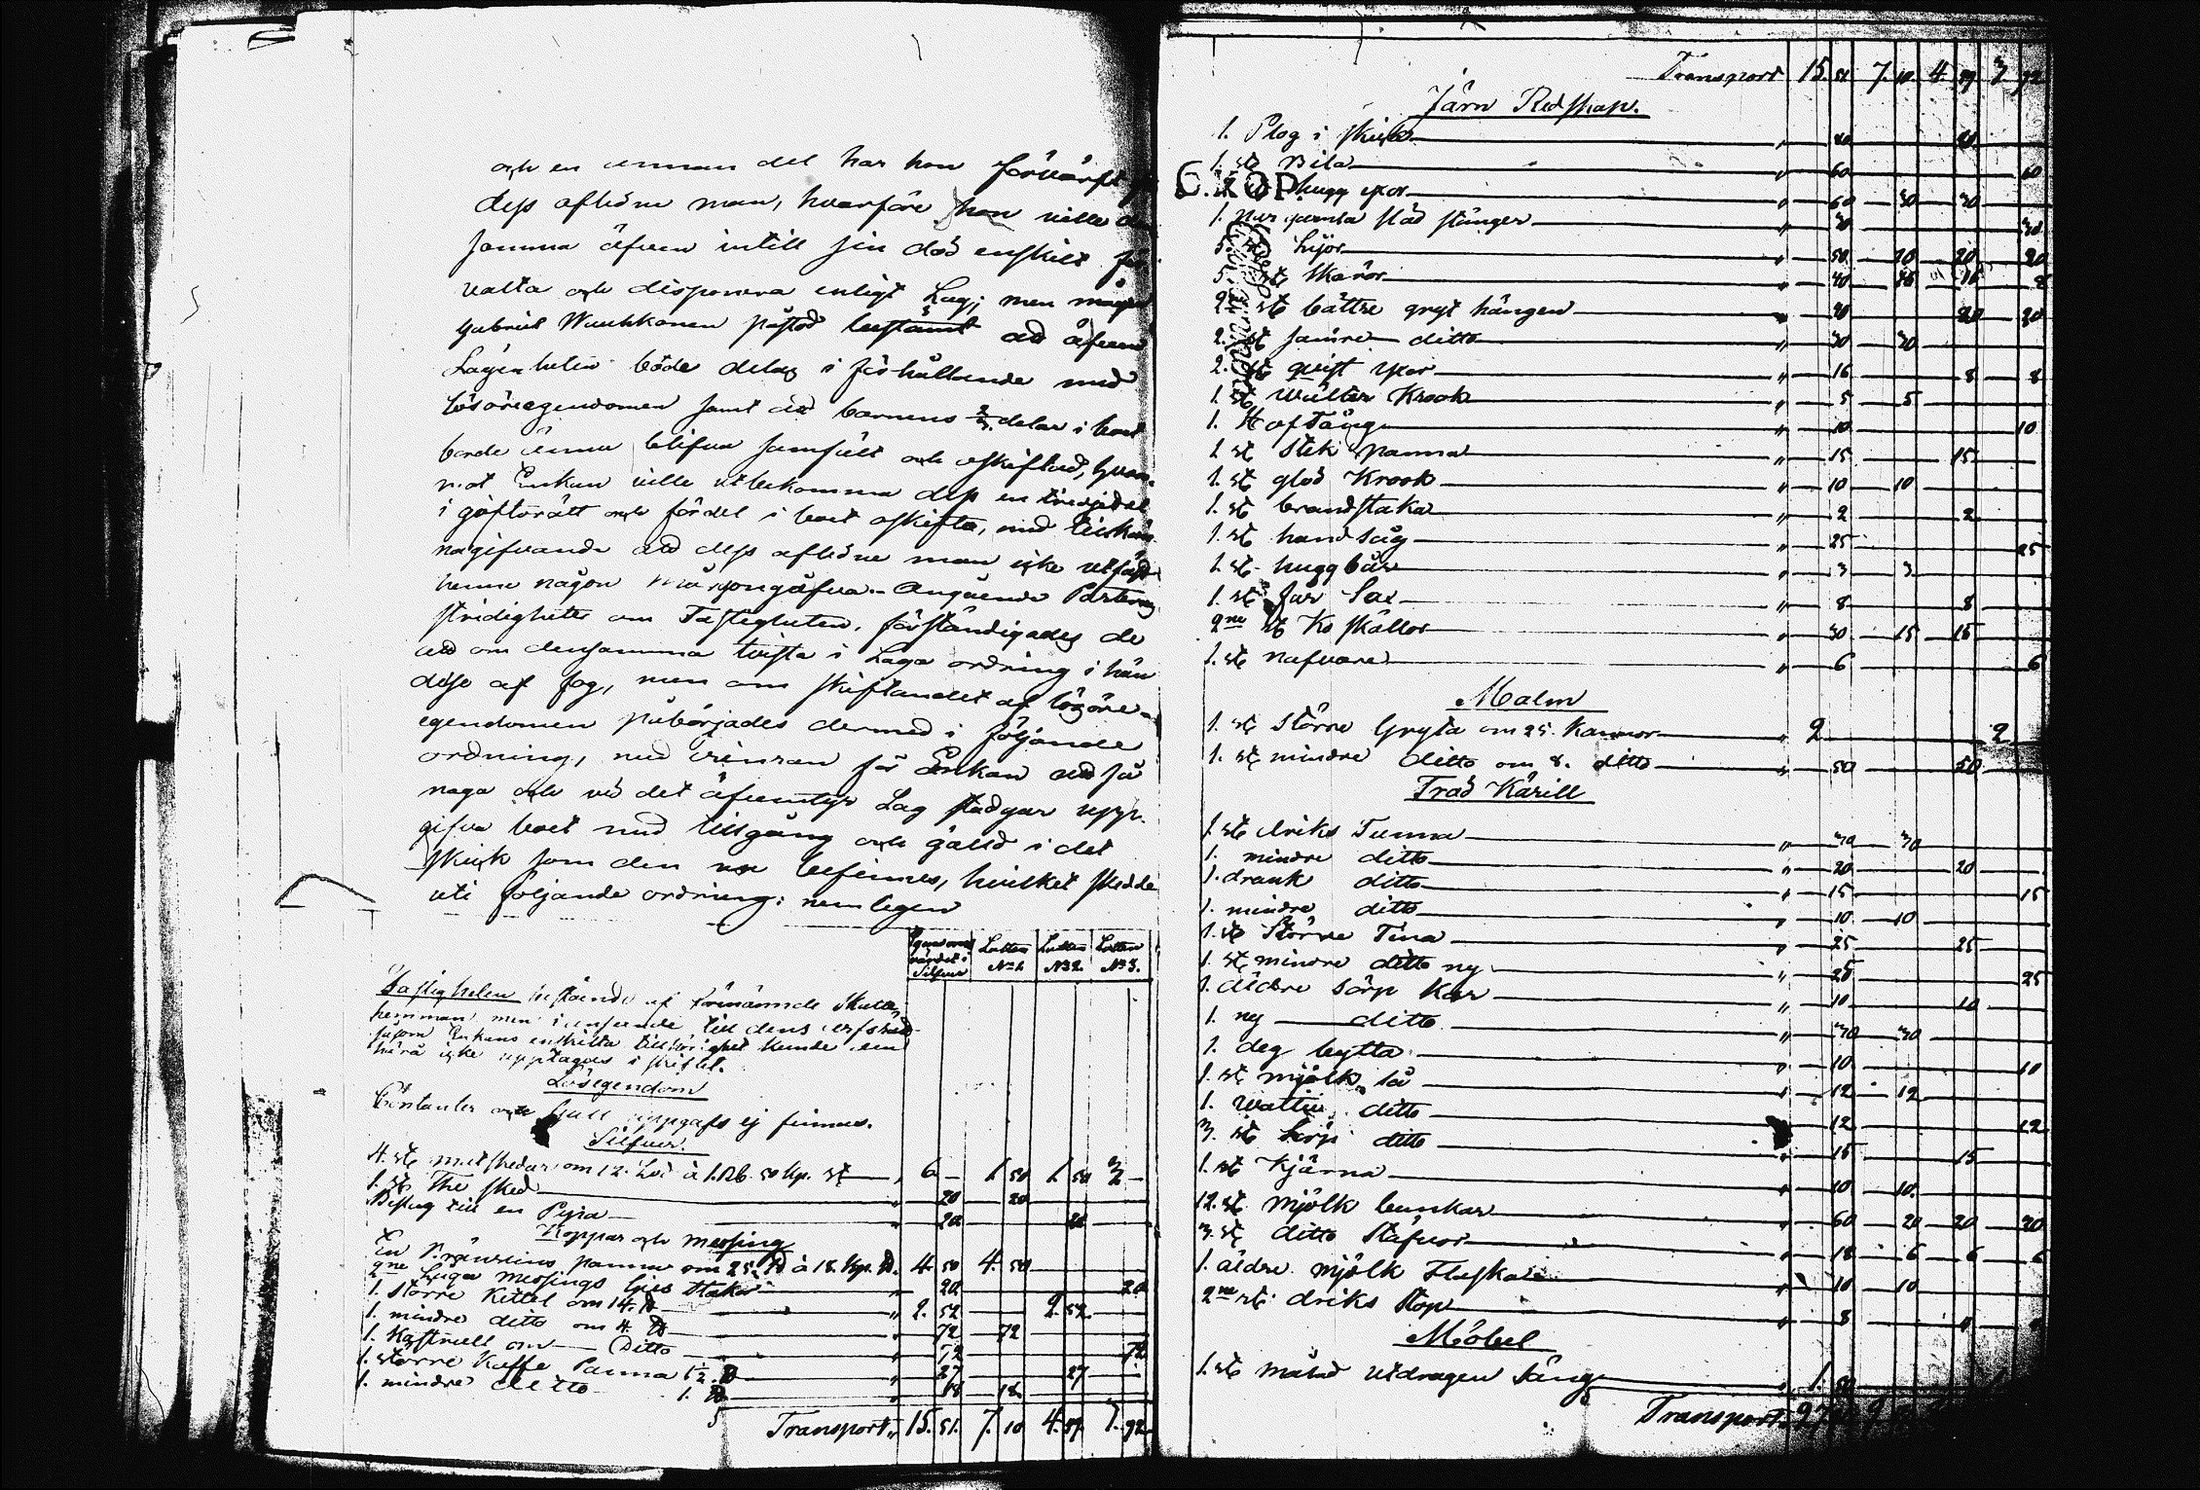 och en annan del har hon förvärft
dess aflidne man, hvarföre hon ville
samma äfven intill sin död enskilt för
valta och disponera enligt Lag; men mågen
Gabriel påstod bestämt att äfven
Lägenheten både delas i förhållande med
lösöreegendomen samt att barnens 2/3 delar i boet
borde ännu blifva samfält och oskiftad, hvar-
mot Enkan ville utbekomma dess en tredjedel
i giftorätt och fördel i boet oskifta, med tillkän-
nagifvande att dess aflidne man icke utfäst
henne någon morgongåfva. Angående Parternas
stridigheter om Fastigheten, förständigades de
att om densamma tvista i Laga ordning i hän
delse af fog, men om skiftandet af lösöre-
egendomen påbörjades dermed i följande
ordning, med erinran för Enkan att så
noga och vid det äfventyr Lag stadgar upp-
gifva boet med tillgång och gäld i det
skick som den nu befinnes, hvilket skedde
uti följande ordning: nemligen
Egendomens värdet i Silfver Lotten No 1. Lotten No 2. Lotten No 3.
Fastigheten bestående af förenämnde Skatte
hemman, men i anseende till dens
såsom Enkans enskilta tillhörighet kunde
härå icke upptagas i skiftet.
Lösegendom
Contanter och Guld uppgafs ej finnas.
Silfver.
4. st. matskedar om 12. Lod à 1. Rb. 50 Kp. st. " 6 — 1. 50 1. 50 3 —
1. st. The sked " 20 20
Beslag till en Pipa " 20 20
Koppar och messing
En Bränvins panna om 25. ℔ à 18. Kp. ℔. 4. 50 4. 50
2ne Låga messings ljus stakar " 20 20
1. större Kettel om 14. ℔ " 2. 52 2. 52
1. mindre ditto om 4. ℔ " 72 72
1. Kastrull om Ditto " 72 72
1. större Kaffe Panna 1½ ℔ " 27 27
1. mindre ditto 1. ℔ " 18 18
Transport " 15. 51. 7. 10 4. 49. 3. 92
Transport 15. 51 7. 10 4. 49 3 92
Järn Redskap.
1. Plog i skick " 20 20
1. st. Bila " 60 60
st. hugg yxor " 60 30 30
1. par gamla släd stänger " 30 30
5. st. Lijor " 50 10 20 20
5. st. skäror " 40 16 16 8
2ne st. bättre gryt hängen " 40 20 20
2. st. sämre ditto " 30 30
2. st. qvist yxor " 16 8 8
1. st. Krook " 5 5
1. Hoftång " 10 10
1. st. Stek panna " 15 15
1. st. glöd Krook " 10 10
1. st. brandstaka " 2 2
1. st. handsåg " 25 25
1. st. hugg bår " 3 3
1. st. får Sax " 8 8
2ne st. Ko skällor " 30 15 15
1. st. nafvare " 6 6
Malm
1. st. Större Gryta om 25. Kannor " 2 2
1. st. mindre ditto om 8. ditto " 50 50
Träd Kärill
1. st. driks Tunna " 30 30
1. mindre ditto " 20 20
1. drank ditto " 15 15
1. mindre ditto " 10 10
1. st. Större Tina " 25 25
1. st. mindre ditto ny " 25 25
1. äldre sörp Kar " 10 10
1. ny ditto " 30 30
1. deg bytta " 10 10
1. st. mjölk så " 12 12
1. Watten ditto " 12 12
3. st. Sörp ditto " 15 15
1. st. Kjärna " 10 10
12. st. mjölk bunkar " 60 20 20 20
3. st. ditto Stäfvor " 18 6 6 6
1. äldre mjölk Flaska " 10 10
2ne st. driks Stop " 8 4 4
Möbel
1. st. målad utdragen Säng " 1. 50
Transport